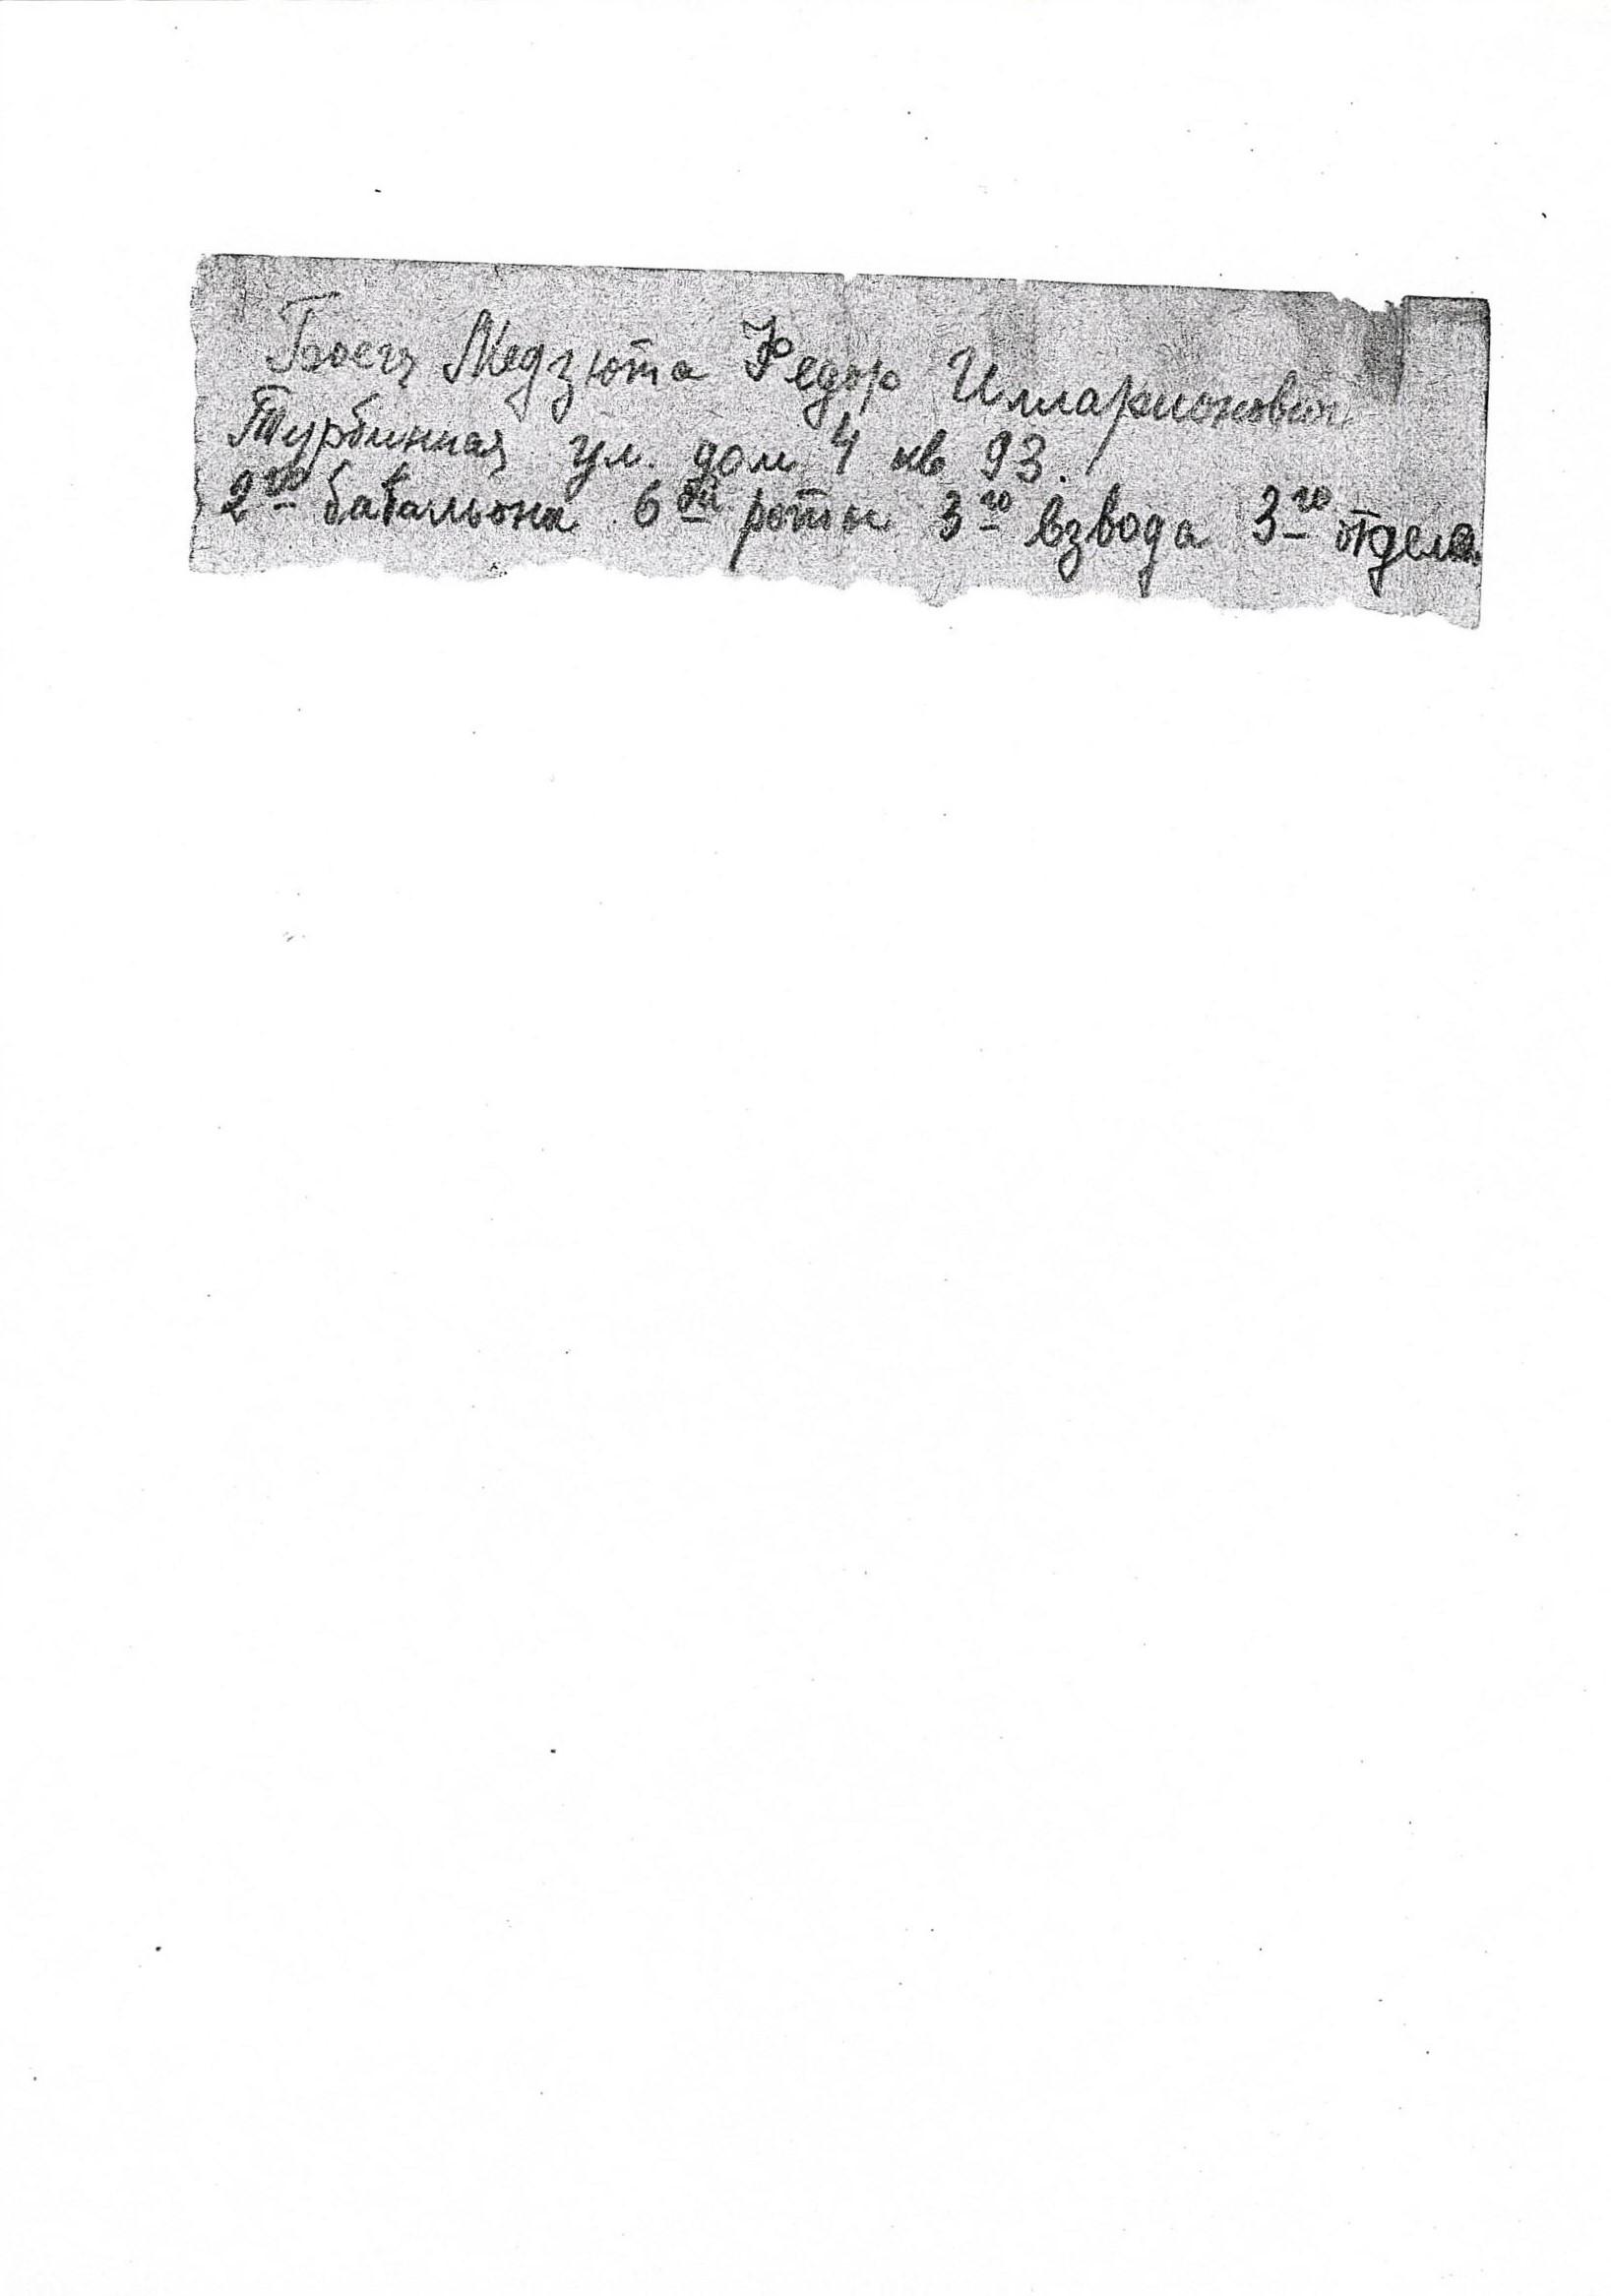 Боец Медзюта Федор Илларионович
Турбинная ул. дом 4 кв 93.
2го батальона 6ой роты 3го взвода 3го отдел.